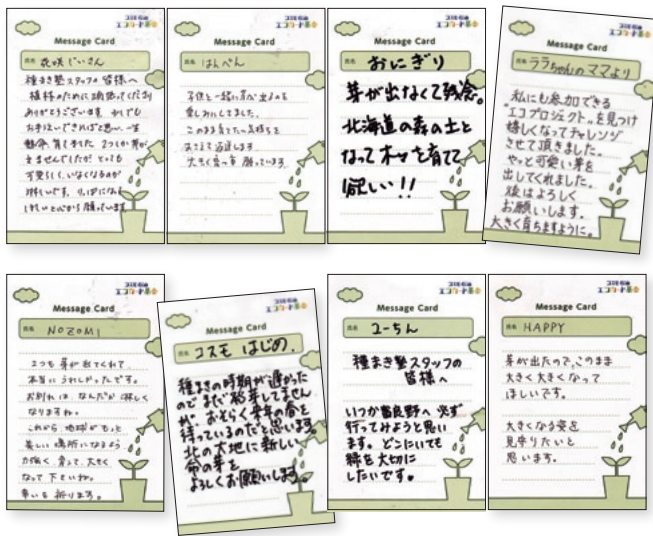 コスモ石油
エコカード基金
Message Card
氏名 花咲じいさん
種まき塾スタッフの皆様へ
植林のために頑張ってくださり
ありがとうございます。少しでも
お手伝いできればと思い、一生
懸命、育てました。2つしか芽が
出ませんでしたが とっても
可愛らしく、いなくなるのが
淋しいです。りっぱになって
ほしいと心から願っています。
コスモ石油
エコカード基金
Message Card
氏名 はんぺん
子供と一緒に芽が出るのを
楽しみにしてました。
このまま育てたい気持ちを
おさえて返送します。
大きく育つ事 願っています。
コスモ石油
エコカード基金
Message Card
氏名 おにぎり
芽が出なくて残念。
北海道の森の土と
なって木々を育てて
欲しい!!
コスモ石油
エコカード基金
Message Card
氏名 ララちゃんのママより
私にも参加できる
"エコプロジェクト"を見つけ
嬉しくなってチャレンジ
させて頂きました。
やっと可愛い芽を
出してくれました。
後はよろしく
お願いします。
大きく育ちますように。
コスモ石油
エコカード基金
Message Card
氏名 NOZOMI
2つも芽が出てくれて、
本当にうれしかったです。
お別れは、なんだか淋しく
なりますね。
これから地球がもっと
美しい場所になるよう
力強く育って、大きく
なって下さいね。
幸いを祈ります。
コスモ石油
エコカード基金
Message Card
氏名 コスモ はじめ.
種まきの時期が遅かった
のでまだ発芽してません
が、おそらく来年の春を
待っているのだと思います。
北の大地に新しい
命の芽を
よろしくお願いします。
コスモ石油
エコカード基金
Message Card
氏名 ユーちん
種まき塾スタッフの
皆様へ
いつか富良野へ必ず
行ってみようと思い
ます。どこにいても
緑を大切に
したいです。
コスモ石油
エコカード基金
Message Card
氏名 HAPPY
芽が出たので、このまま
大きく大きくなって
ほしいです。
大きくなる姿を
見守りたいと
思います。